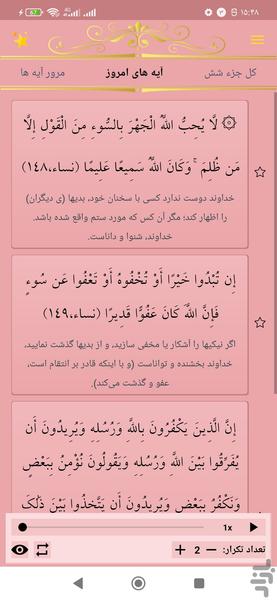 ۱۵:۴۸
کل جزء شش
آیه های امروز
مرور آیه ها
۞ لَّا يُحِبُّ اللَّهُ الْجَهْرَ بِالسُّوءِ مِنَ الْقَوْلِ إِلَّا
مَن ظُلِمَ ۚ وَكَانَ اللَّهُ سَمِيعًا عَلِيمًا (نساء،۱۴۸)
خداوند دوست ندارد کسی با سخنان خود، بدیها (ی دیگران)
را اظهار کند؛ مگر آن کس که مورد ستم واقع شده باشد.
خداوند، شنوا و داناست.
إِن تُبْدُوا خَيْرًا أَوْ تُخْفُوهُ أَوْ تَعْفُوا عَن سُوءٍ
فَإِنَّ اللَّهَ كَانَ عَفُوًّا قَدِيرًا (نساء،۱۴۹)
اگر نیکیها را آشکار یا مخفی سازید، و از بدیها گذشت نمایید،
خداوند بخشنده و تواناست (و با اینکه قادر بر انتقام است،
عفو و گذشت می‌کند).
إِنَّ الَّذِينَ يَكْفُرُونَ بِاللَّهِ وَرُسُلِهِ وَيُرِيدُونَ أَن
يُفَرِّقُوا بَيْنَ اللَّهِ وَرُسُلِهِ وَيَقُولُونَ نُؤْمِنُ بِبَعْضٍ
وَنَكْفُرُ بِبَعْضٍ وَيُرِيدُونَ أَن يَتَّخِذُوا بَيْنَ ذَٰلِكَ
1x
تعداد تکرار: − 2 +
بازار